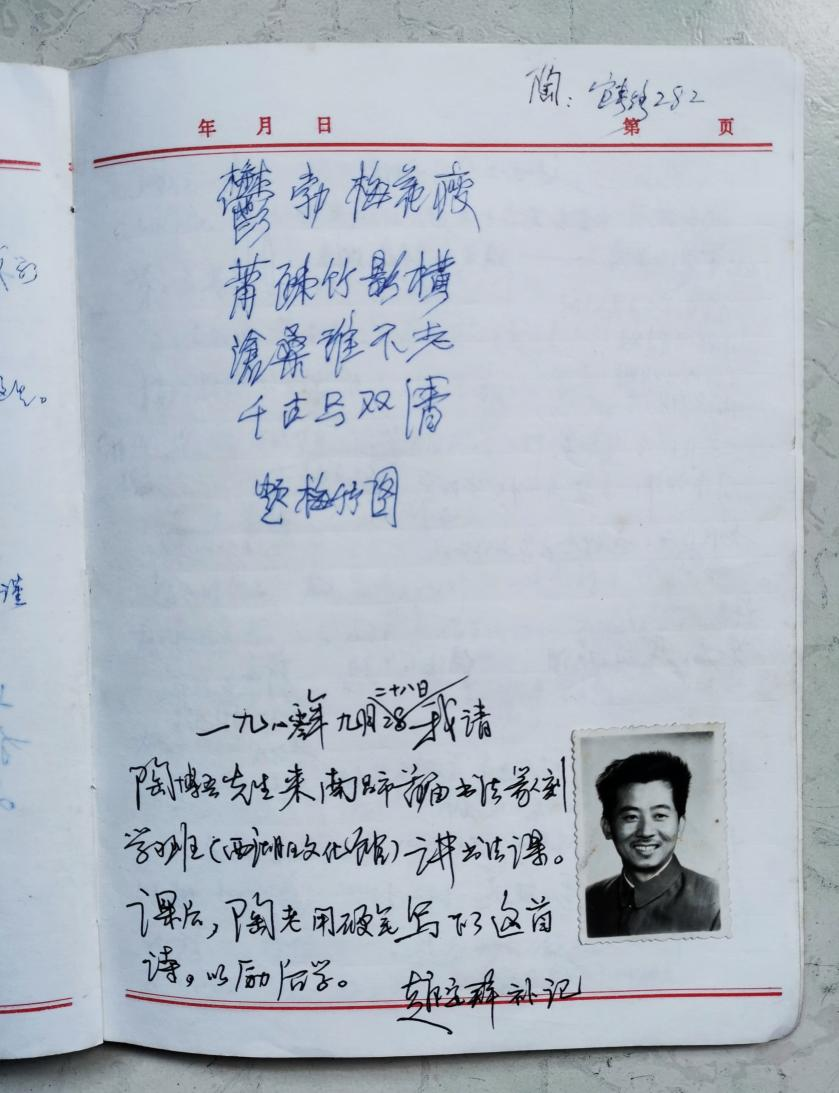 陶：宜春路282
年 月 日 第 页
鬱勃梅花瘦
萧疎竹影横
滄桑谁不老
千古号双清
题梅竹图
二十八日
一九八零年九月28我请
陶博吾先生来南昌市首届书法篆刻
学习班（西湖区文化馆）讲书法课。
课后，陶老用硬笔写下了这首
诗，以励后学。
赵定群补记
谨